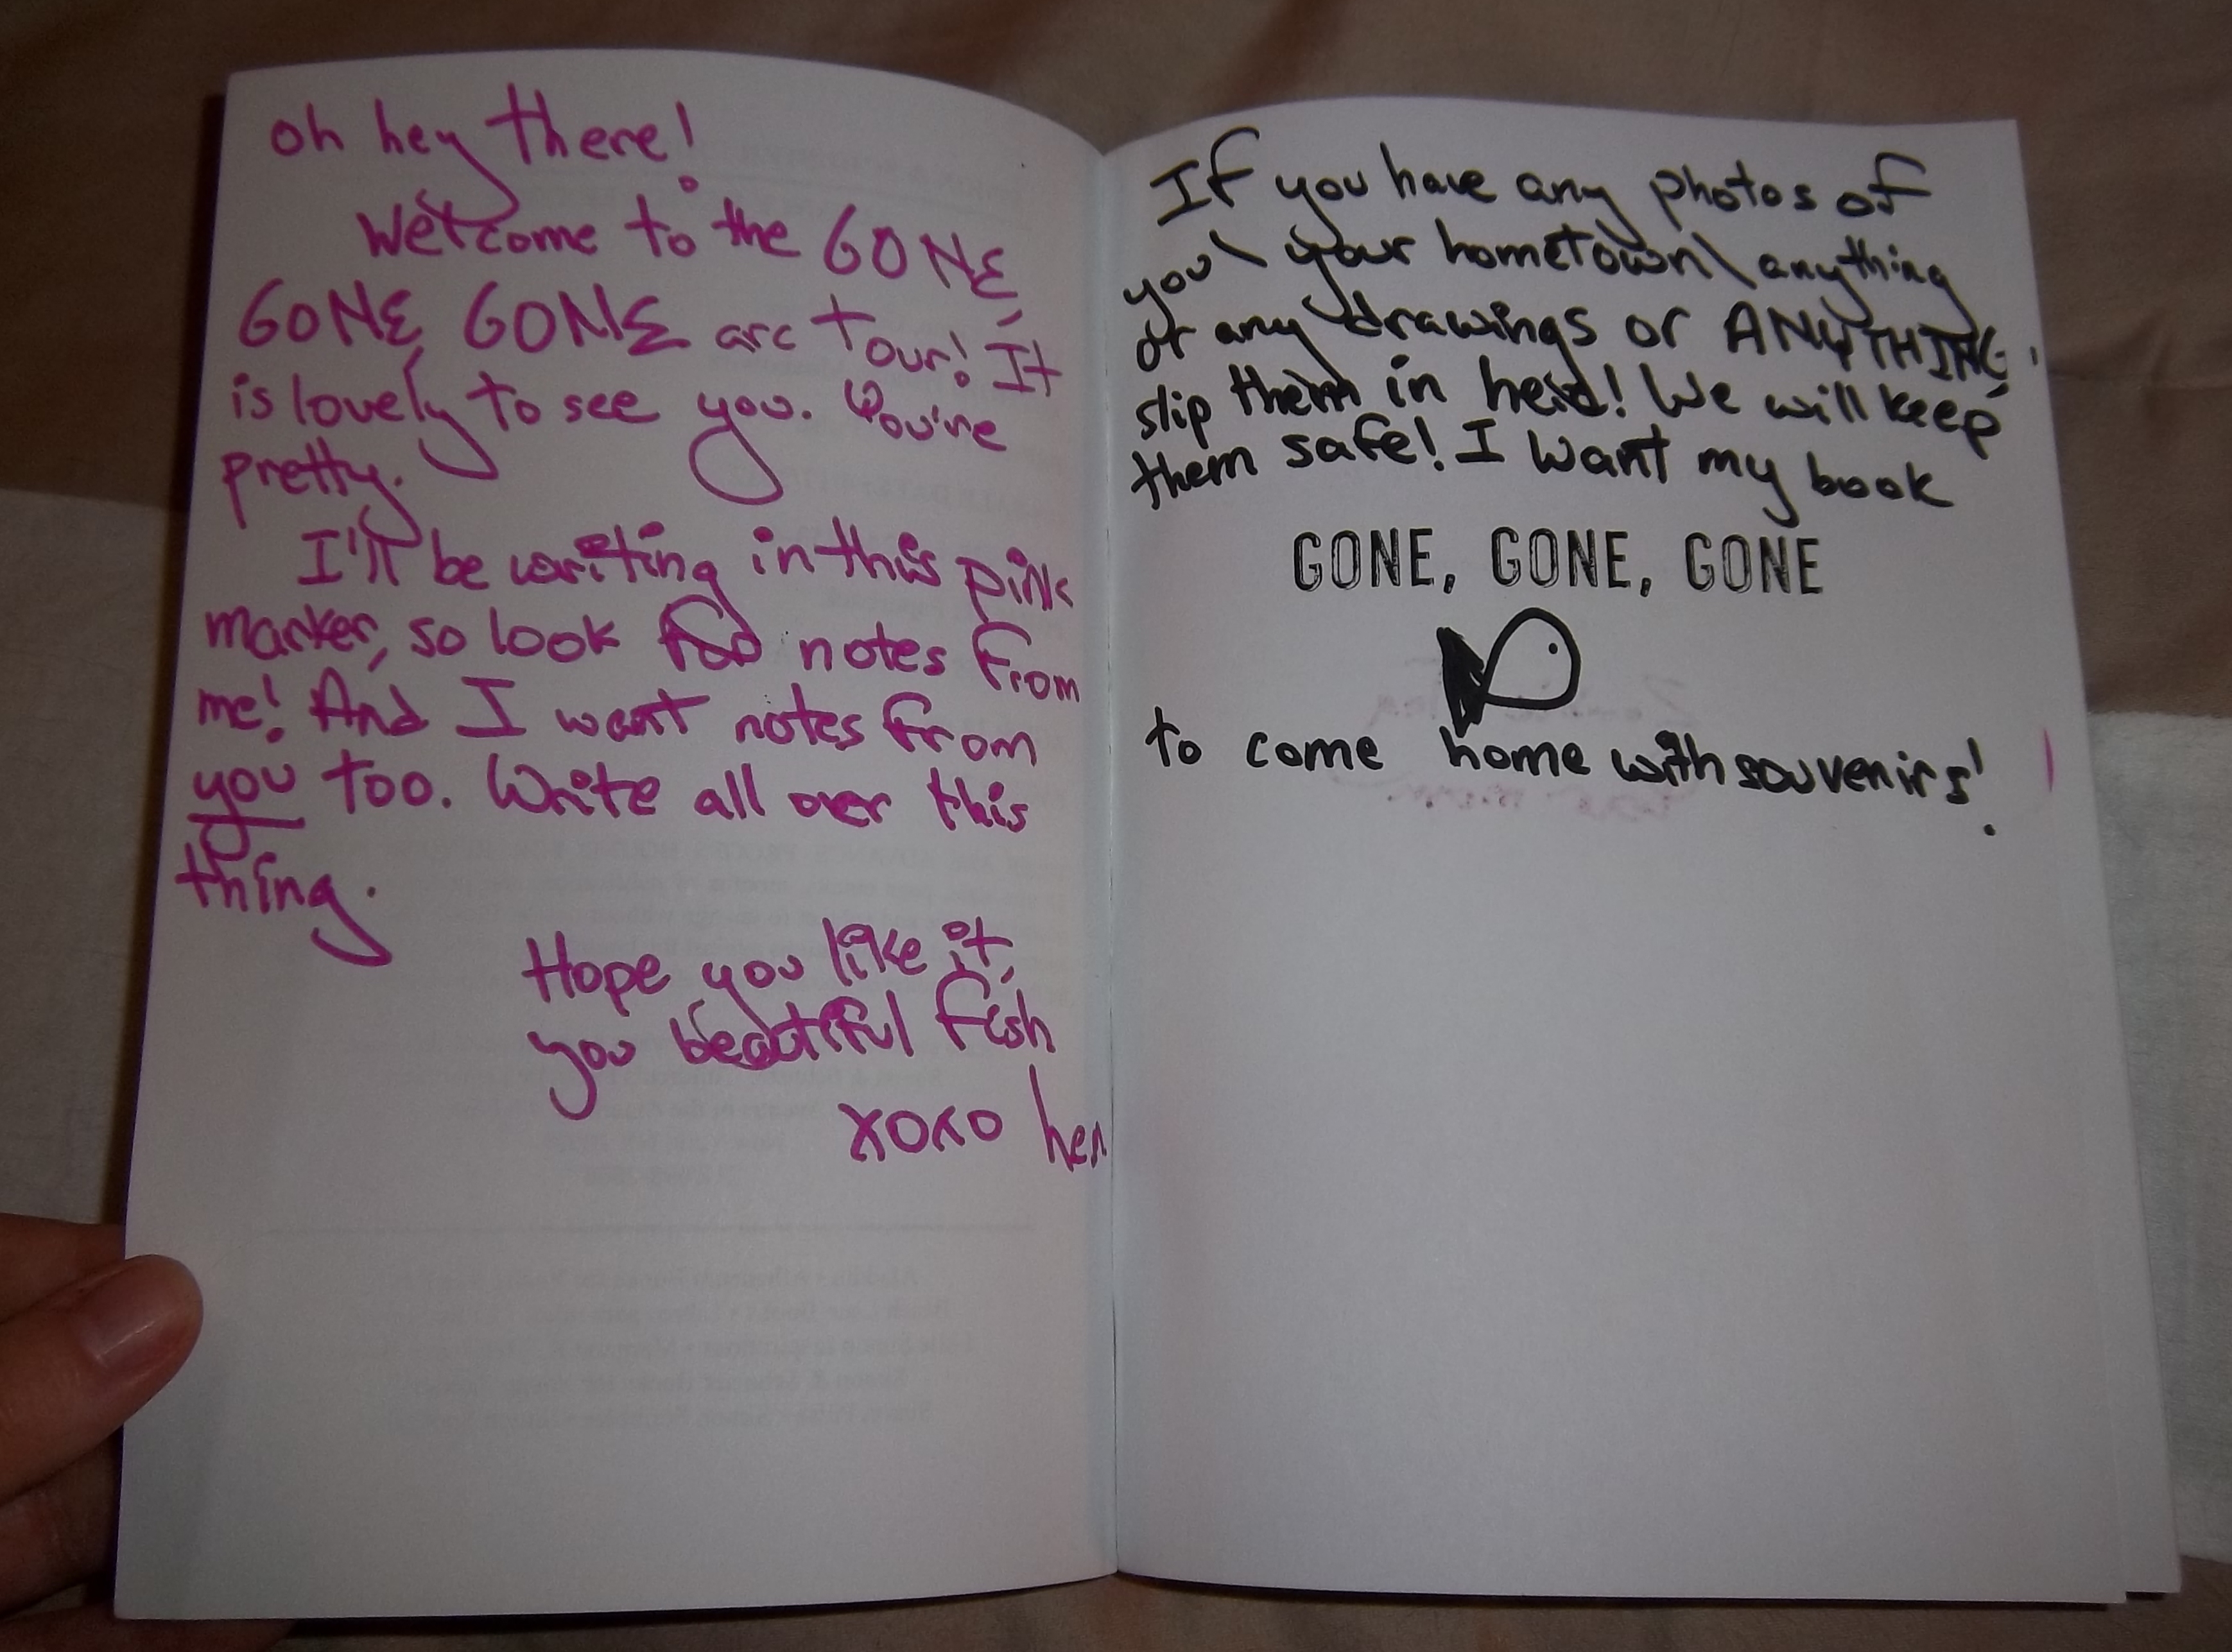 oh hey there!
Welcome to the GONE,
GONE, GONE arc tour! It
is lovely to see you. You're
pretty.
I'll be writing in this pink
marker, so look for notes from
me! And I want notes from
you too. Write all over this
thing.
Hope you like it,
you beautiful fish
xoxo hen
If you have any photos of
you\ your hometown\ anything
or any drawings or ANYTHING,
slip them in here! We will keep
them safe! I want my book
GONE, GONE, GONE
to come home with souvenirs!